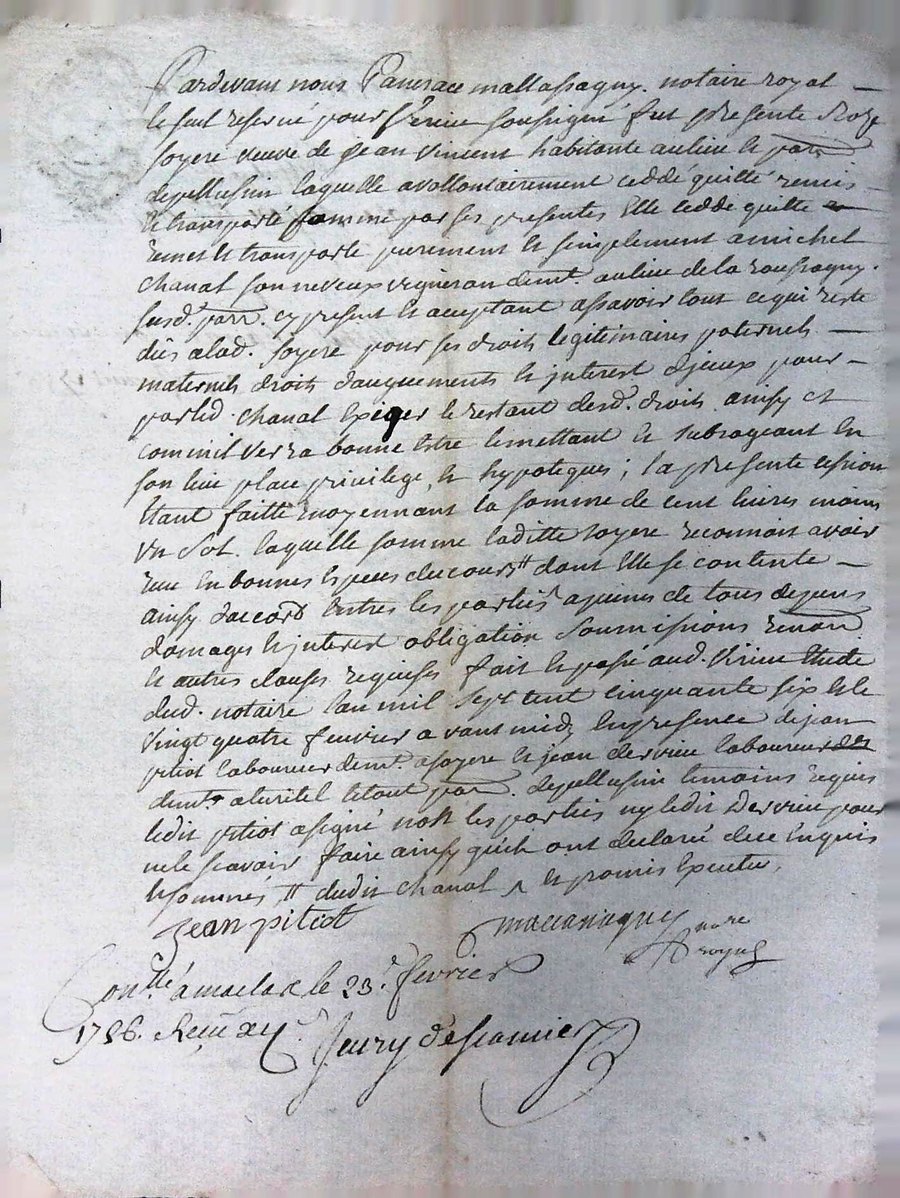 Pardevant nous Pancrace mallassagny. notaire royal —
le seul reservé pour Virieu soussigné fut presente Roze
soyere veuve de jean vincent habitante au lieu et parr
de pellussin laquelle a vollontairement cedde quitté remis —
et transporté comme par ses presentes elle cedde quitte
remet et transporte purement et simplement a michel
chanal son neveux vigneron demt. au lieu de la
susd. parr. cy present et aceptant assavoir tout ce qui reste
dûs a lad. soyere pour ses droits legitimaires paternels —
maternels droits d'auguements et interest d'jceux pour —
par led. chanal exiger le restant desd. droits ainsy et
comm'il verra bonne estre le mettant et subrogeant en
son lieu place privilege, et hypoteques; la presente cession
étant faitte moyennant la somme de cent livres moins
un sol. laquelle somme laditte soyere reconnait avoir
reçue en bonnes especes du cours dont elle se contente —
ainsy d'accord entres les parties a peines de tous depens
domages et jnterest obligation soumissions renon
et autres clauses requises fait et passé aud. Virieu étude
dud. notaire l'an mil sept cent cinquante six et le
vingt quatre fevrier avant midy en presence de jean
pitiot laboureur demt. a soyere et jean dervieu laboureur
demt. a le tout parr. de pellussin temoins requis
ledit pitiot a signé non les parties ny ledit Dervieu pour
ne le scavoir faire ainsy qu'ils ont declaré de ce enquis
et sommés, # dudit chanal et promis executer,
jean pitiot mallassagny nore
royal
Conllé. a maclas le 23e. fevrier
1756. Reçu
fleury d'escomier